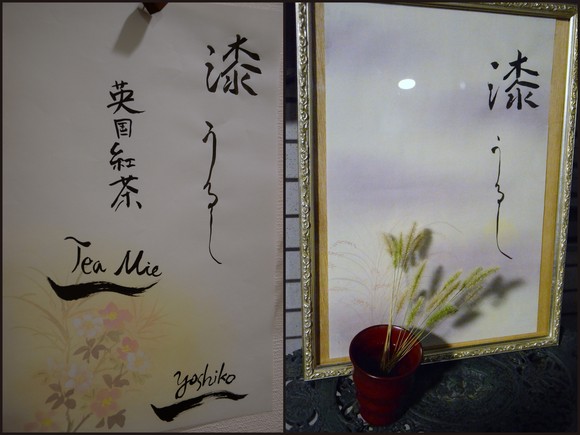 漆
うるし
英国紅茶
Tea Mie
yoshiko
漆
うるし